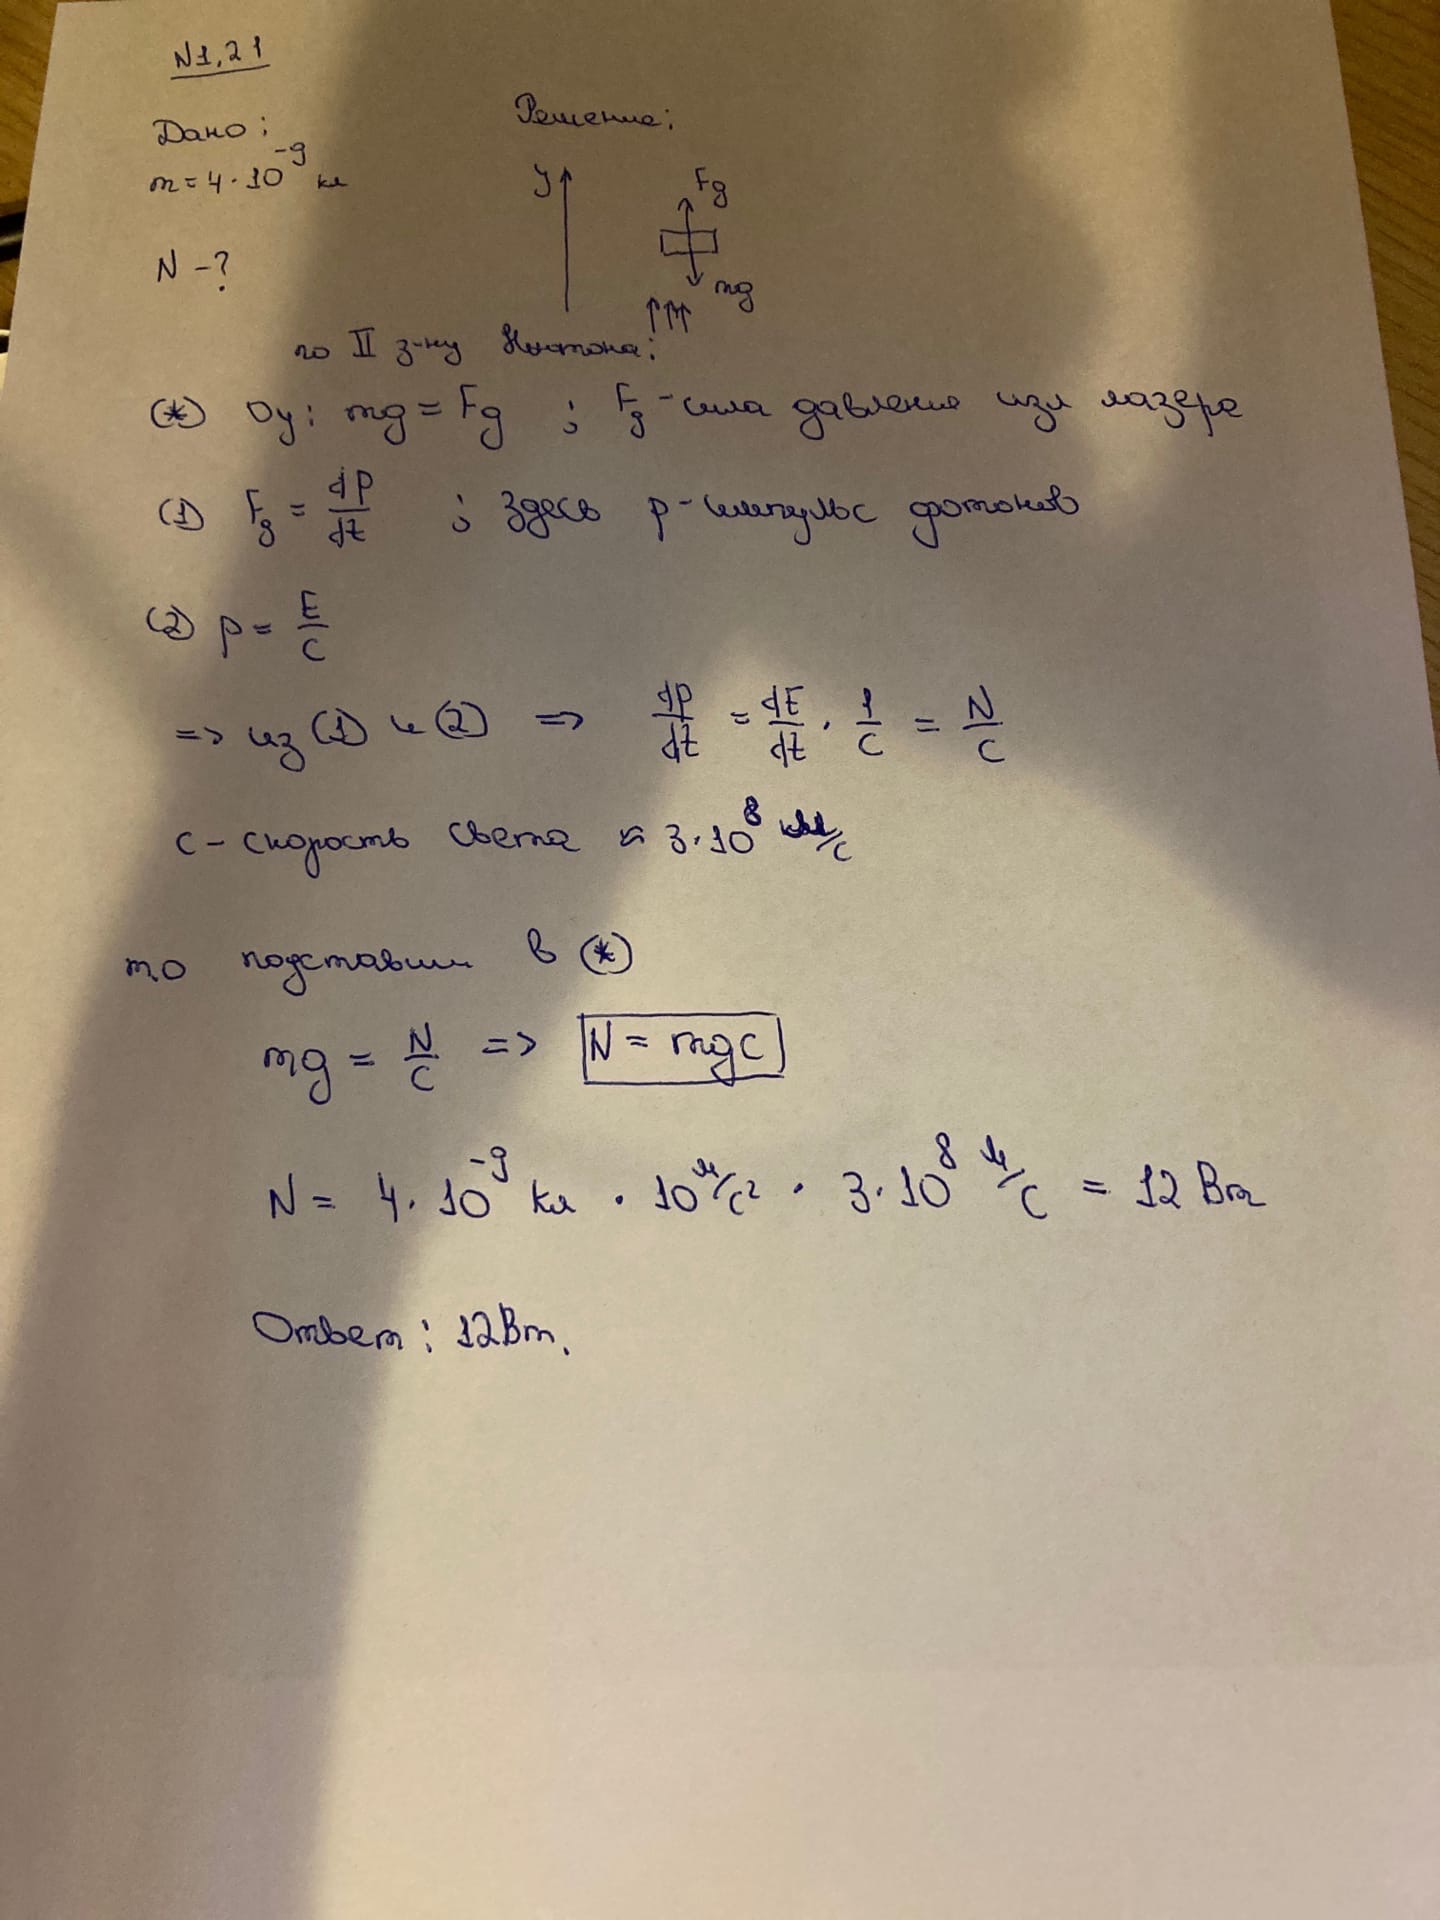 N1,21
Дано:
m = 4 · 10⁻⁹ кг
N - ?
Решение:
y
Fg
mg
по II з-ну Ньютона:
(*) Oy: mg = Fg ; Fg - сила давления изл лазера
(1) Fg = dP/dt ; здесь p - импульс фотонов
(2) p = E/C
=> из (1) и (2) => dP/dt = dE/dt · 1/C = N/C
с - скорость света ≈ 3 · 10⁸ м/с
то подставим в (*)
mg = N/C => N = mgc
N = 4 · 10⁻⁹ кг · 10 м/с² · 3 · 10⁸ м/с = 12 Вт
Ответ: 12 Вт.